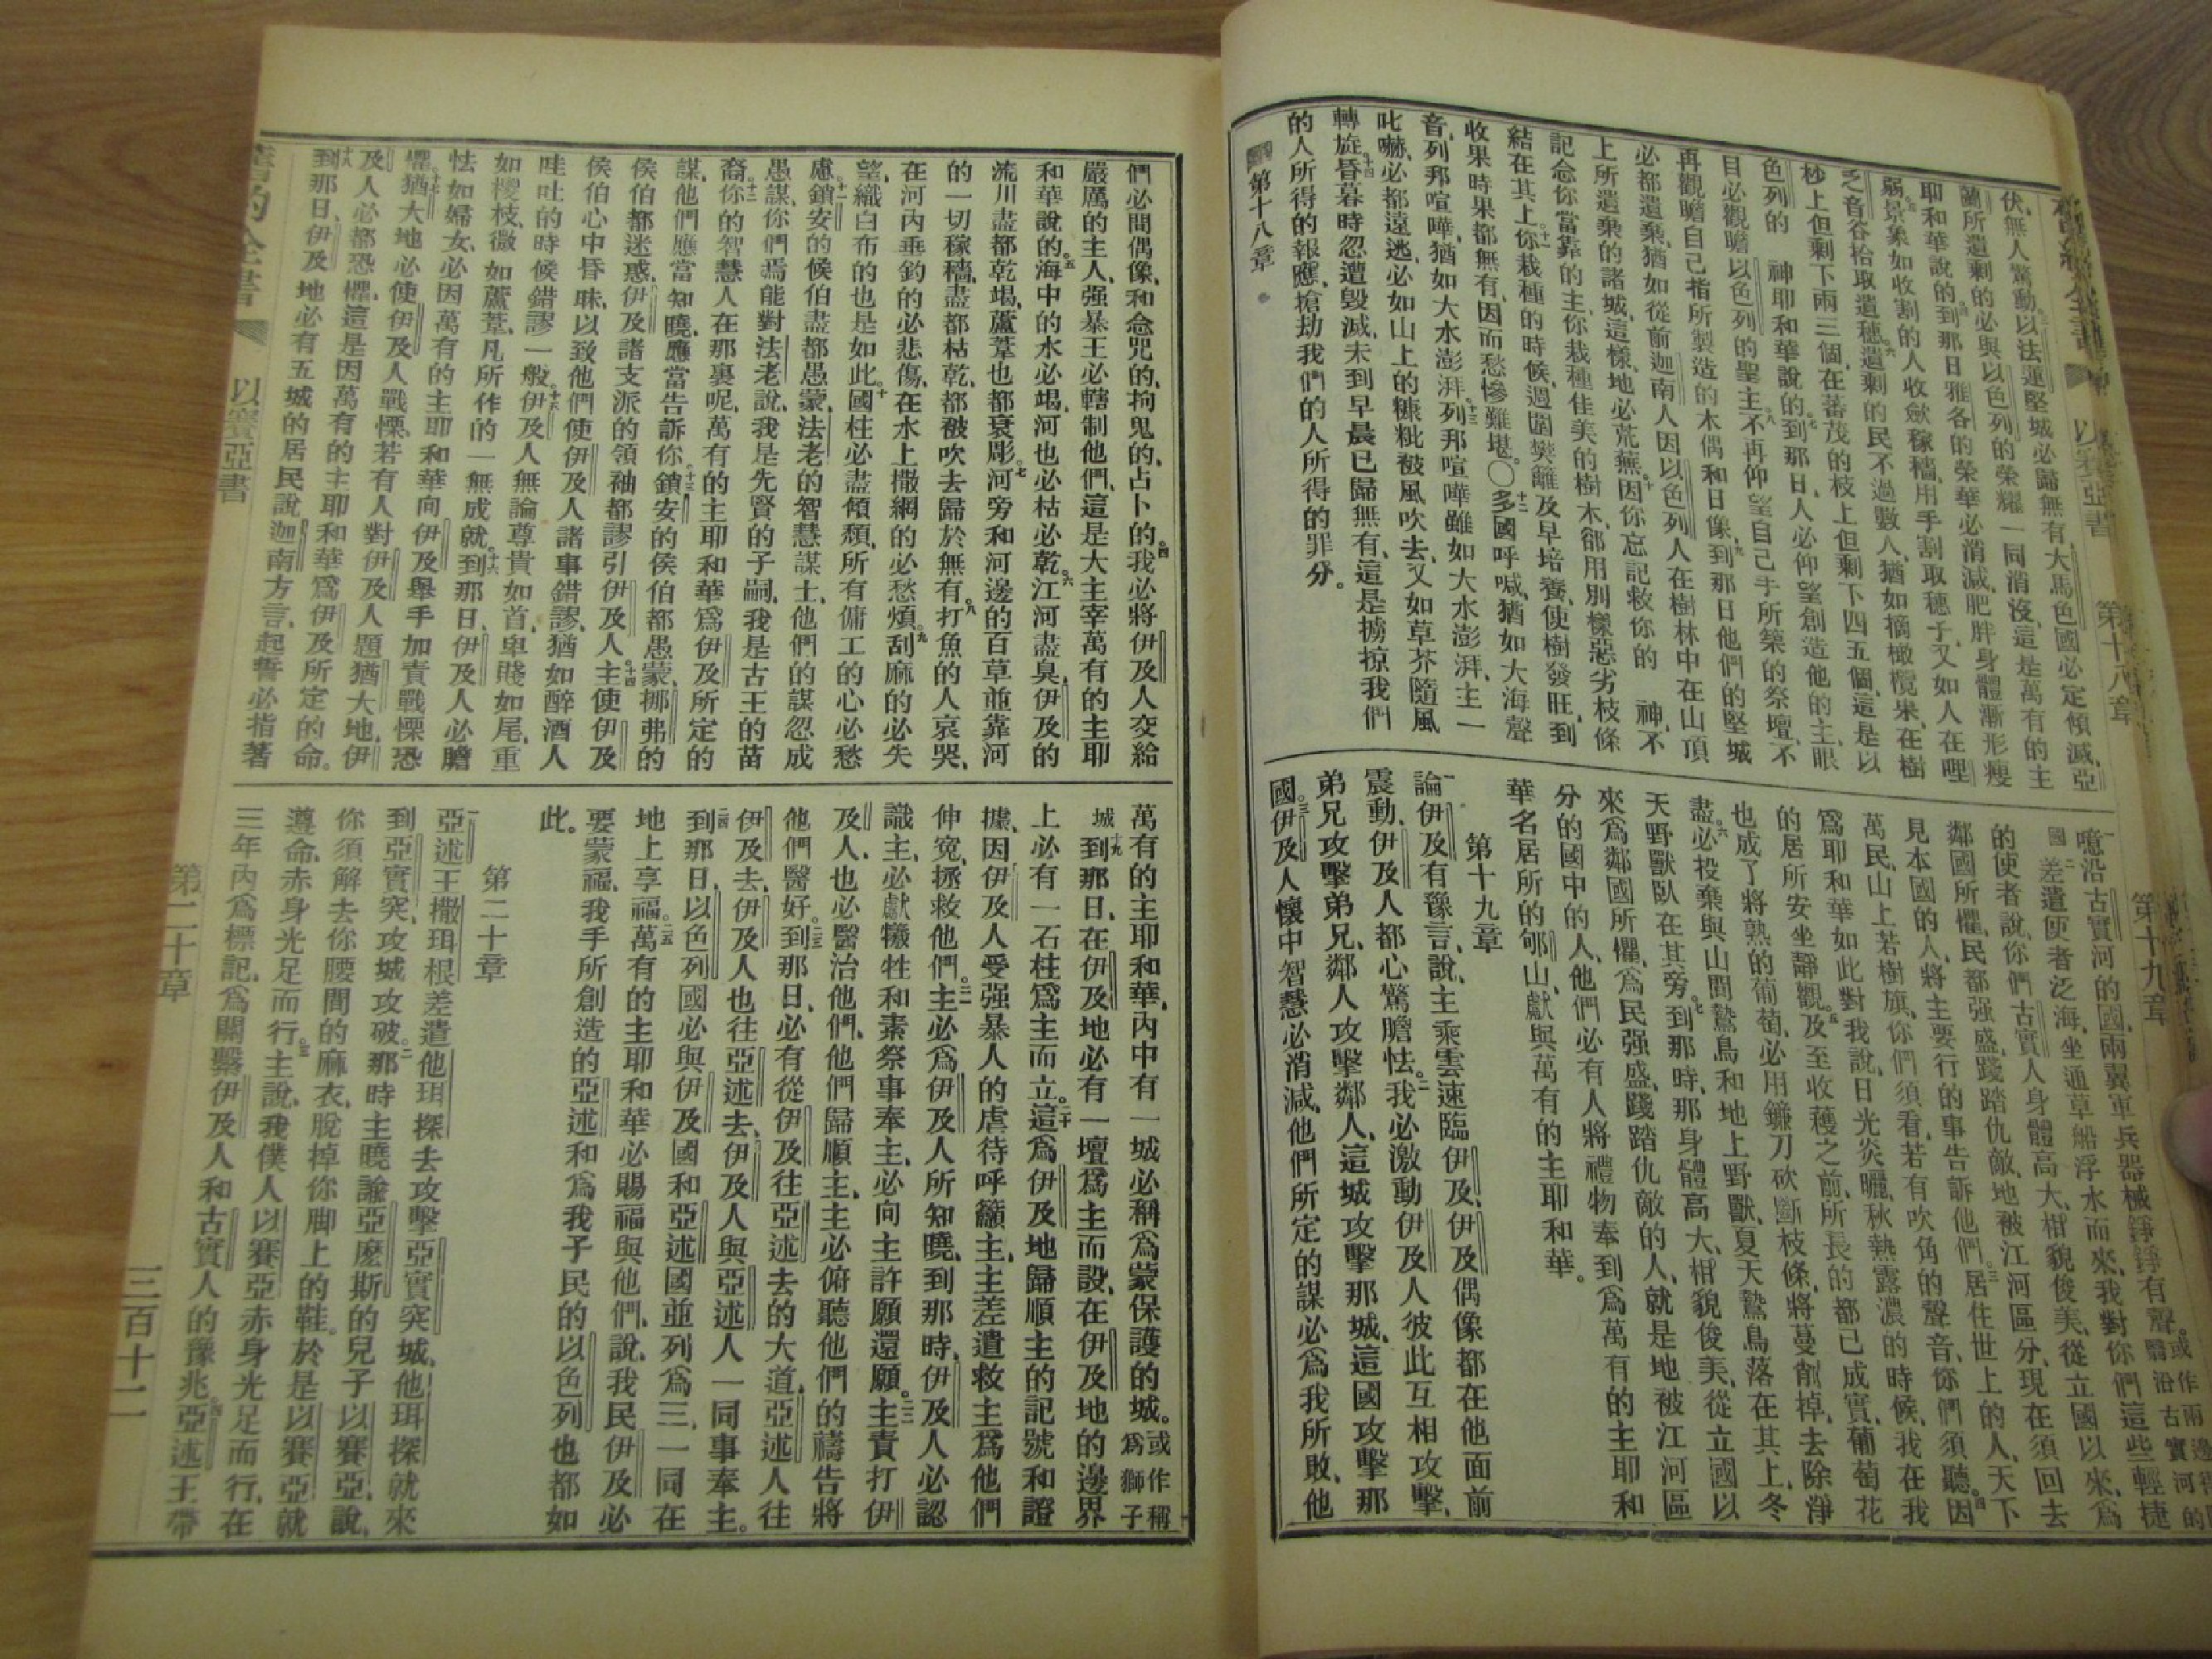 伏、無人驚動。以法蓮堅城必歸無有、大馬色國必定傾滅、亞
蘭所遺剩的必與以色列的榮耀一同消沒、這是萬有的主
耶和華說的。到那日雅各的榮華必消滅、肥胖身體漸形瘦
弱。景象如收割的人收歛稼穡、用手割取穗子、又如人在哩
乏音谷拾取遺穗。遺剩的民不過數人、猶如摘橄欖果、在樹
杪上但剩下兩三個、在蕃茂的枝上但剩下四五個、這是以
色列的 神耶和華說的。到那日人必仰望創造他的主、眼
目必觀瞻以色列的聖主。不再仰望自己手所築的祭壇、不
再觀瞻自己指所製造的木偶和日像。到那日他們的堅城
必都遺棄、猶如從前迦南人因以色列人在樹林中在山頂
上所遺棄的諸城、這樣、地必荒蕪。因你忘記救你的 神、不
記念你當靠的主、你栽種佳美的樹木、卻用別樣惡劣枝條
結在其上。你栽種的時候、週圍樊籬、及早培養、使樹發旺、到
收果時果都無有、因而愁慘難堪。〇多國呼喊、猶如大海聲
音、列邦喧嘩、猶如大水澎湃。列邦喧嘩雖如大水澎湃、主一
叱嚇、必都遠逃、必如山上的糠粃被風吹去、又如草芥隨風
轉旋。昏暮時忽遭毀滅、未到早晨已歸無有、這是擄掠我們
的人所得的報應、搶劫我們的人所得的罪分。
第十八章
噫、沿古實河的國、兩翼軍兵器械錚錚有聲。
國差遣使者泛海、坐通草船浮水而來、我對你們這些輕捷
的使者說、你們古實人身體高大、相貌俊美、從立國以來、爲
鄰國所懼、民都强盛、踐踏仇敵、地被江河區分、現在須回去
見本國的人、將主要行的事告訴他們。居住世上的人、天下
萬民、山上若樹旗、你們須看、若有吹角的聲音、你們須聽。因
爲耶和華如此對我說、日光炎曬、秋熱露濃的時候、我在我
的居所安坐靜觀。及至收穫之前、所長的都已成實、葡萄花
也成了將熟的葡萄、必用鐮刀砍斷枝條、將蔓削掉、去除淨
盡。必投棄與山間鷙鳥和地上野獸、夏天鷙鳥落在其上、冬
天野獸臥在其旁。到那時、那身體高大、相貌俊美、從立國以
來爲鄰國所懼、爲民强盛、踐踏仇敵的人、就是地被江河區
分的國中的人、他們必有人將禮物奉到爲萬有的主耶和
華名居所的郇山、獻與萬有的主耶和華。
第十九章
論伊及有豫言、說、主乘雲速臨伊及、伊及偶像都在他面前
震動、伊及人都心驚膽怯。我必激動伊及人彼此互相攻擊、
弟兄攻擊弟兄、鄰人攻擊鄰人、這城攻擊那城、這國攻擊那
國。伊及人懷中智慧必消滅、他們所定的謀必爲我所敗、他
們必問偶像、和念咒的、拘鬼的、占卜的。我必將伊及人交給
嚴厲的主人、强暴王必轄制他們、這是大主宰萬有的主耶
和華說的。海中的水必竭、河也必枯必乾。江河盡臭、伊及的
流川盡都乾竭、蘆葦也都衰彫。河旁和河邊的百草並靠河
的一切稼穡、盡都枯乾、都被吹去歸於無有。打魚的人哀哭、
在河內垂釣的必悲傷、在水上撒網的必愁煩。刮麻的必失
望、織白布的也是如此。國柱必盡傾頹、所有傭工的心必愁
慮。鎖安的候伯盡都愚蒙、法老的智慧謀士、他們的謀忽成
愚謀、你們焉能對法老說、我是先賢的子嗣、我是古王的苗
裔。你的智慧人在那裏呢、萬有的主耶和華爲伊及所定的
謀、他們應當知曉、應當告訴你。鎖安的侯伯都愚蒙、挪弗的
侯伯都迷惑、伊及諸支派的領袖都謬引伊及人。主使伊及
侯伯心中昏昧、以致他們使伊及人諸事錯謬、猶如醉酒人
哇吐的時候錯謬一般。伊及人無論尊貴如首、卑賤如尾、重
如椶枝、微如蘆葦、凡所作的一無成就。到那日、伊及人必膽
怯如婦女、必因萬有的主耶和華向伊及舉手加責、戰慄恐
懼。猶大地必使伊及人戰慄、若有人對伊及人題猶大地、伊
及人必都恐懼、這是因萬有的主耶和華爲伊及所定的命。
到那日、伊及地必有五城的居民說迦南方言、起誓必指著
萬有的主耶和華、內中有一城必稱爲蒙保護的城。或作稱爲獅子
城到那日、在伊及地必有一壇爲主而設、在伊及地的邊界
上必有一石柱爲主而立。這爲伊及地歸順主的記號和證
據、因伊及人受强暴人的虐待呼籲主、主差遣救主爲他們
伸寃、拯救他們。主必爲伊及人所知曉、到那時、伊及人必認
識主、必獻犧牲和素祭事奉主、必向主許願還願。主責打伊
及人、也必醫治他們、他們歸順主、主必俯聽他們的禱告將
他們醫好。到那日、必有從伊及往亞述去的大道、亞述人往
伊及去、伊及人也往亞述去、伊及人與亞述人一同事奉主。
到那日、以色列國必與伊及國和亞述國並列爲三、一同在
地上享福。萬有的主耶和華必賜福與他們、說、我民伊及必
要蒙福、我手所創造的亞述和爲我子民的以色列也都如
此。
第二十章
亞述王撒珥根差遣他珥探去攻擊亞實突城、他珥探就來
到亞實突、攻城攻破。那時主曉諭亞麼斯的兒子以賽亞、說、
你須解去你腰間的麻衣、脫掉你脚上的鞋。於是以賽亞就
遵命、赤身光足而行。主說、我僕人以賽亞赤身光足而行、在
三年內爲標記、爲關繫伊及人和古實人的豫兆。亞述王帶
以賽亞書
第二十章
三百十二